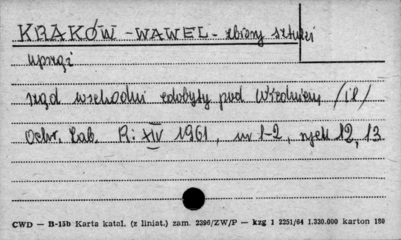 KRAKÓW - WAWEL - zbiory sztuki
uprząż
rząd wschodni zdobyty pod Wiedniem /il/
Ochr. Zab. R: XIV 1961, nr 1-2, ryc 12, 13
CWD — B-15b Karta katal. (z liniat.) zam. 2396/ZW/P — kzg 1 2251/64 1.320.000 karton 180